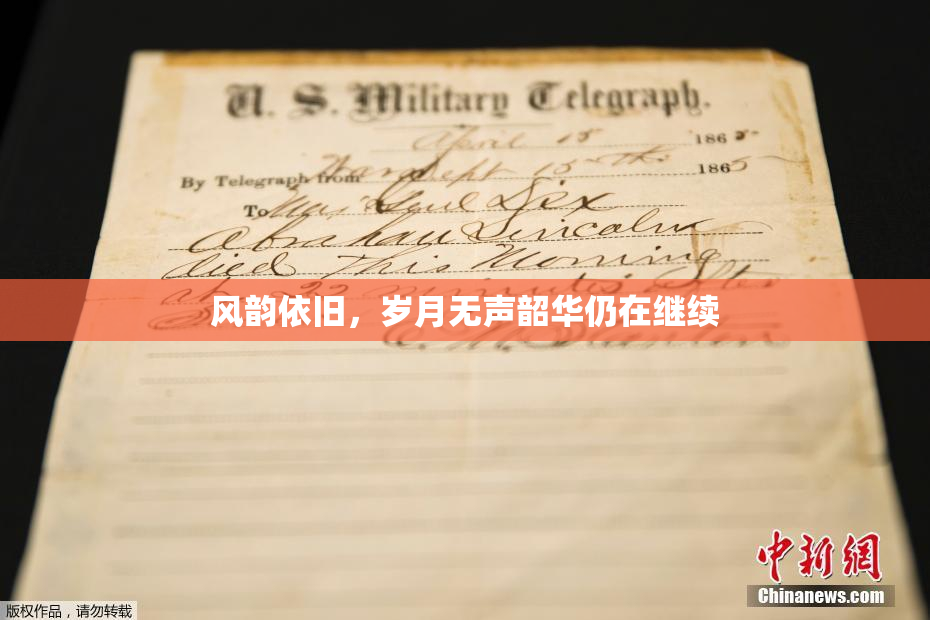 U. S. Military Telegraph.
April 15 1865
By Telegraph from War Dept 15th 1865
To Maj Genl Dix
Abraham Lincoln
died This Morning
at 22 minutes after
风韵依旧，岁月无声韶华仍在继续
E. M. Stanton
中新网
Chinanews.com
版权作品，请勿转载